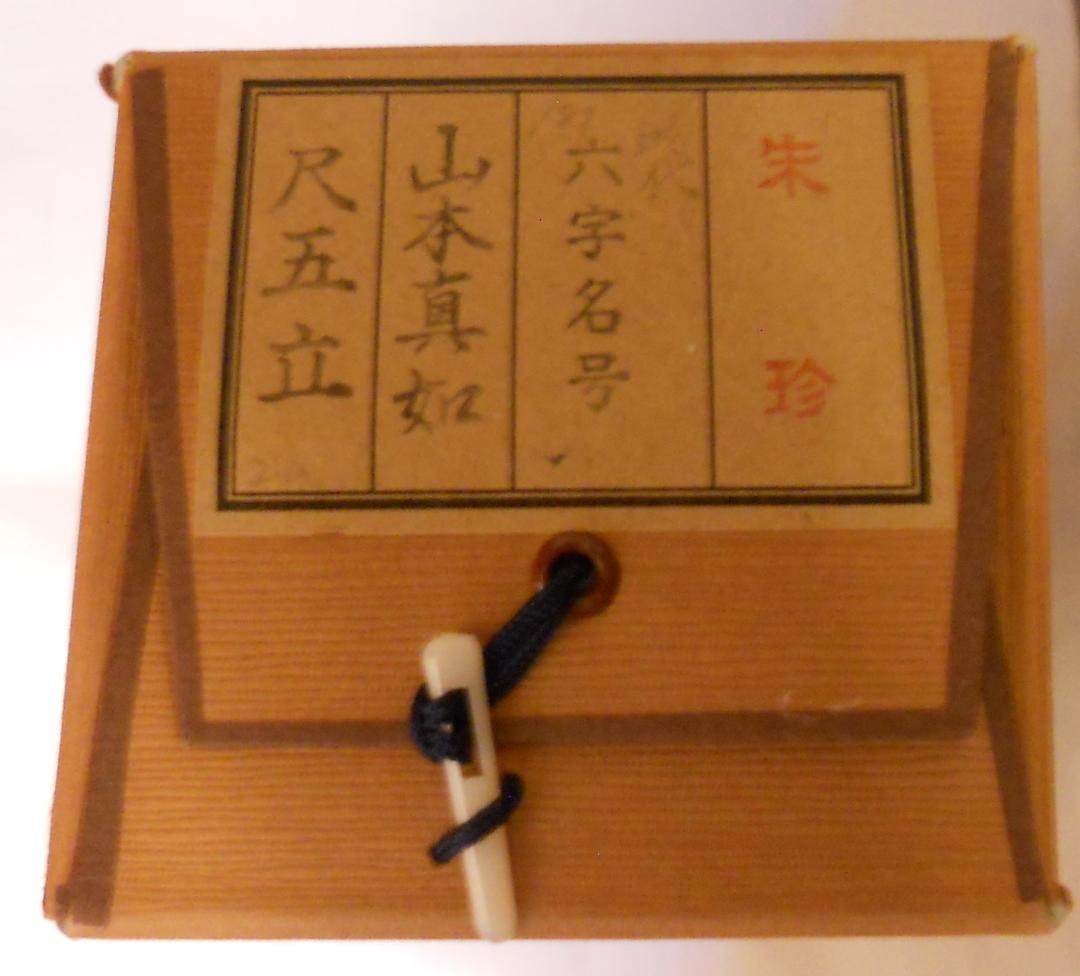 朱珍
六字名号
山本真如
尺五立